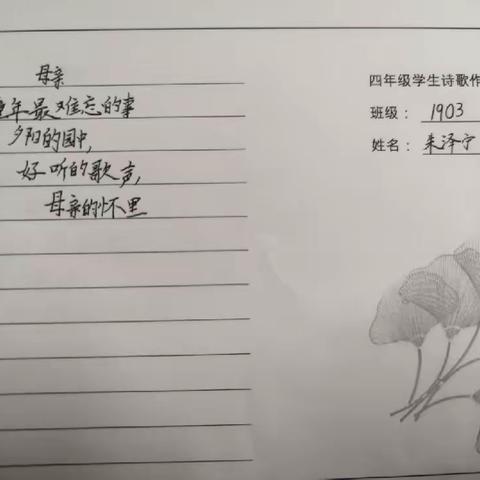 母亲
童年最难忘的事
夕阳的园中,
好听的歌声,
母亲的怀里
四年级学生诗歌作
班级： 1903
姓名： 朱泽宁